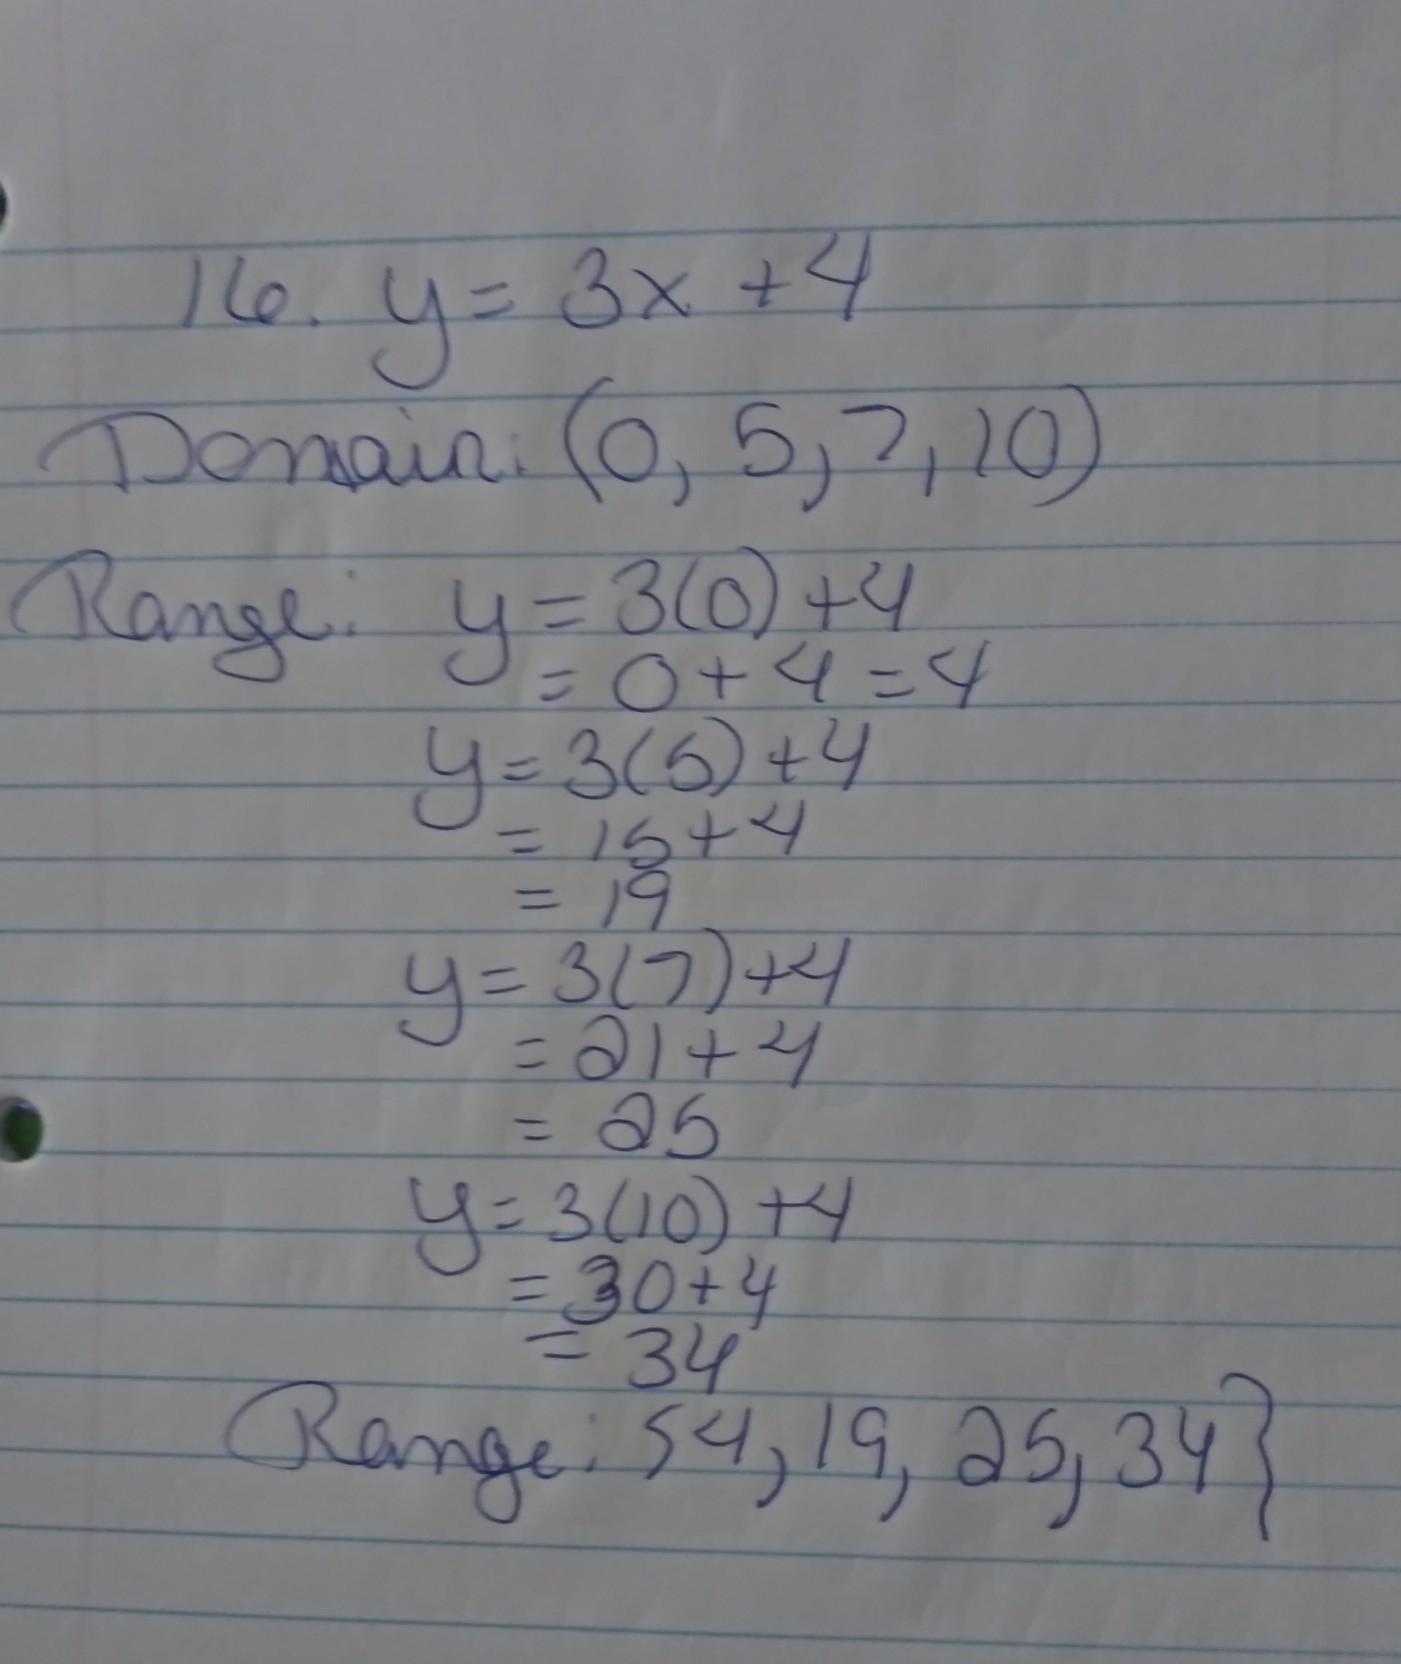 16. y = 3x + 4
Domain: (0, 5, 7, 10)
Range: y = 3(0) + 4
= 0 + 4 = 4
y = 3(5) + 4
= 15 + 4
= 19
y = 3(7) + 4
= 21 + 4
= 25
y = 3(10) + 4
= 30 + 4
= 34
Range: {4, 19, 25, 34}